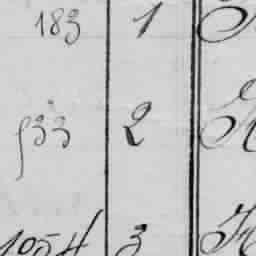 183 1
533 2
1054 3